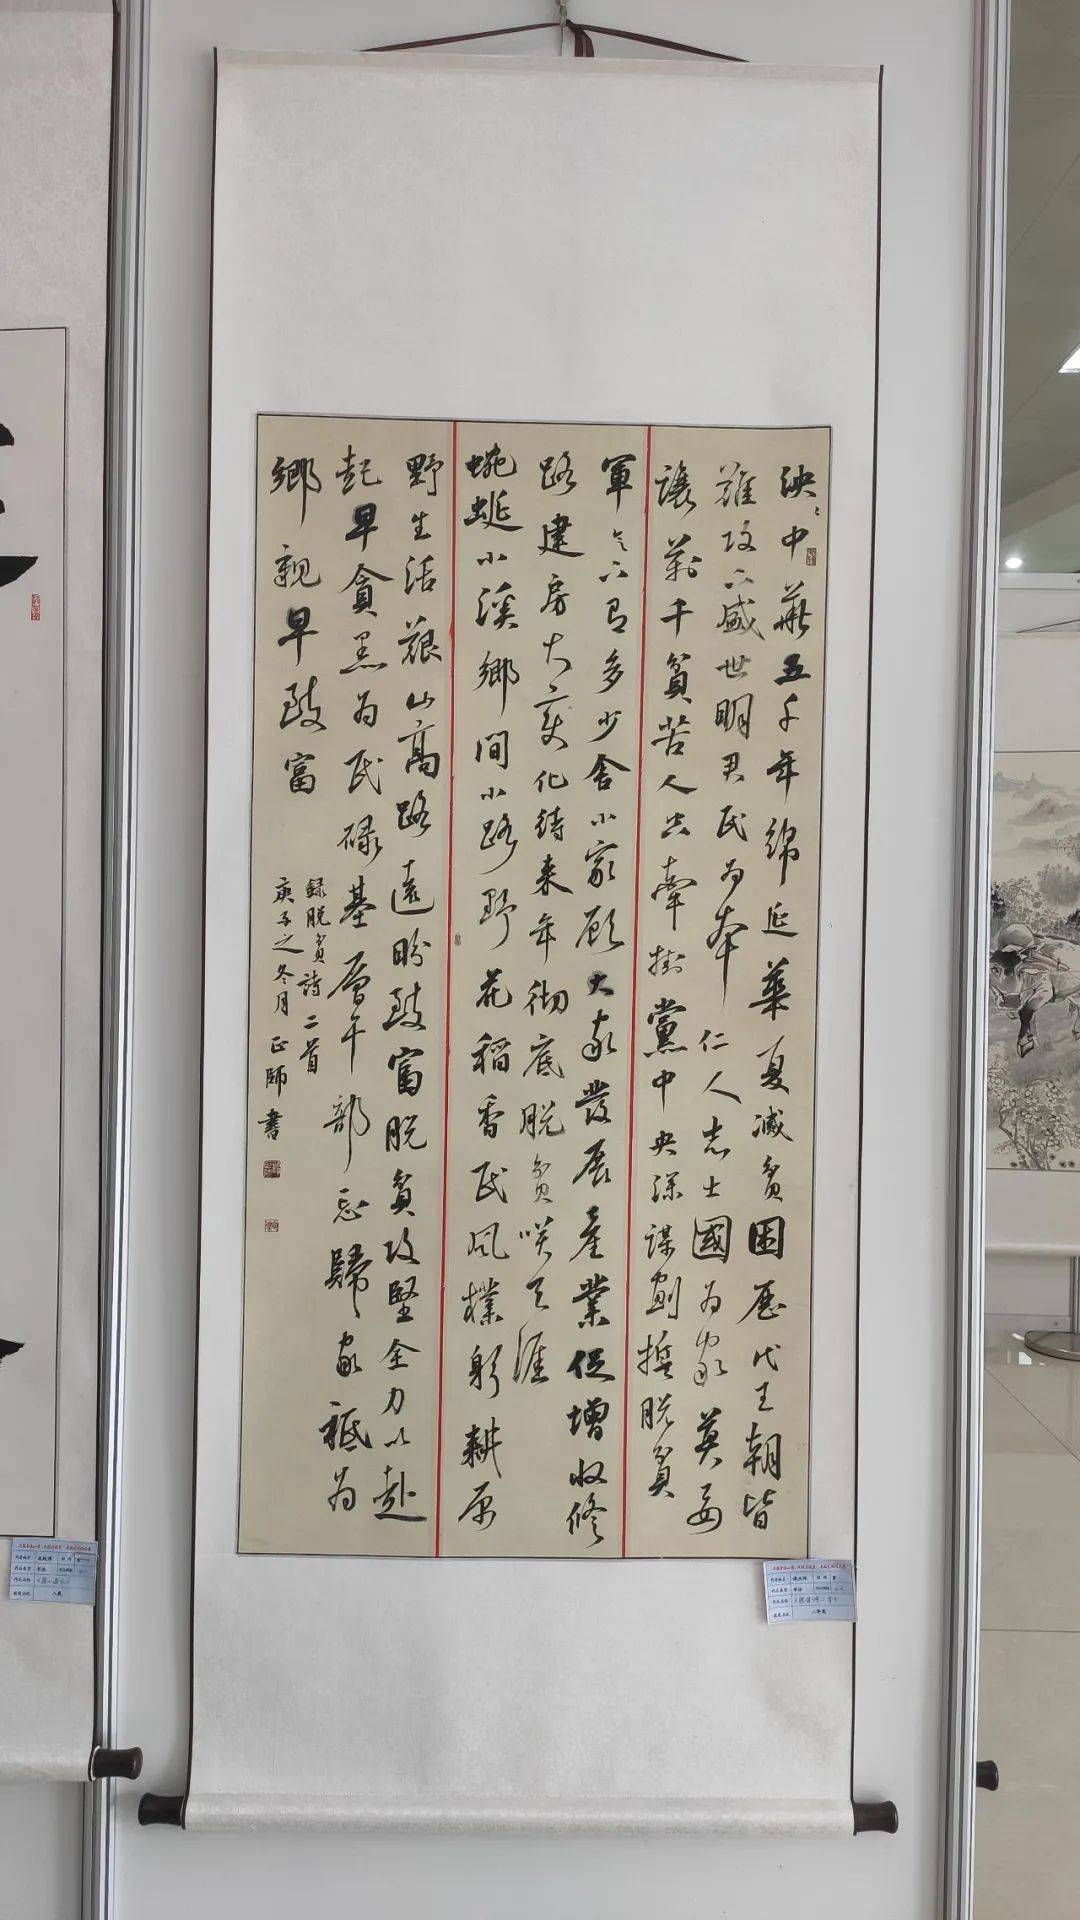 泱〻中華五千年綿延華夏滅貧困歷代王朝皆
難攻下盛世明君民為本仁人志士國為家莫忘
讓萬千貧苦人共牽掛黨中央深謀劃攜脫貧
軍令下有多少舍小家顧大家發展產業促增收修
路建房大變化待來年彻底脫貧咲天涯
蜿蜒小溪鄉間小路野花稻香民風樸躬耕原
野生活艱山高路遠盼致富脫貧攻堅全力以赴
起早貪黑為民碌基層干部忘歸家祗為
鄉親早致富
錄脫貧詩二首
庚子之冬月正師書
二等奖